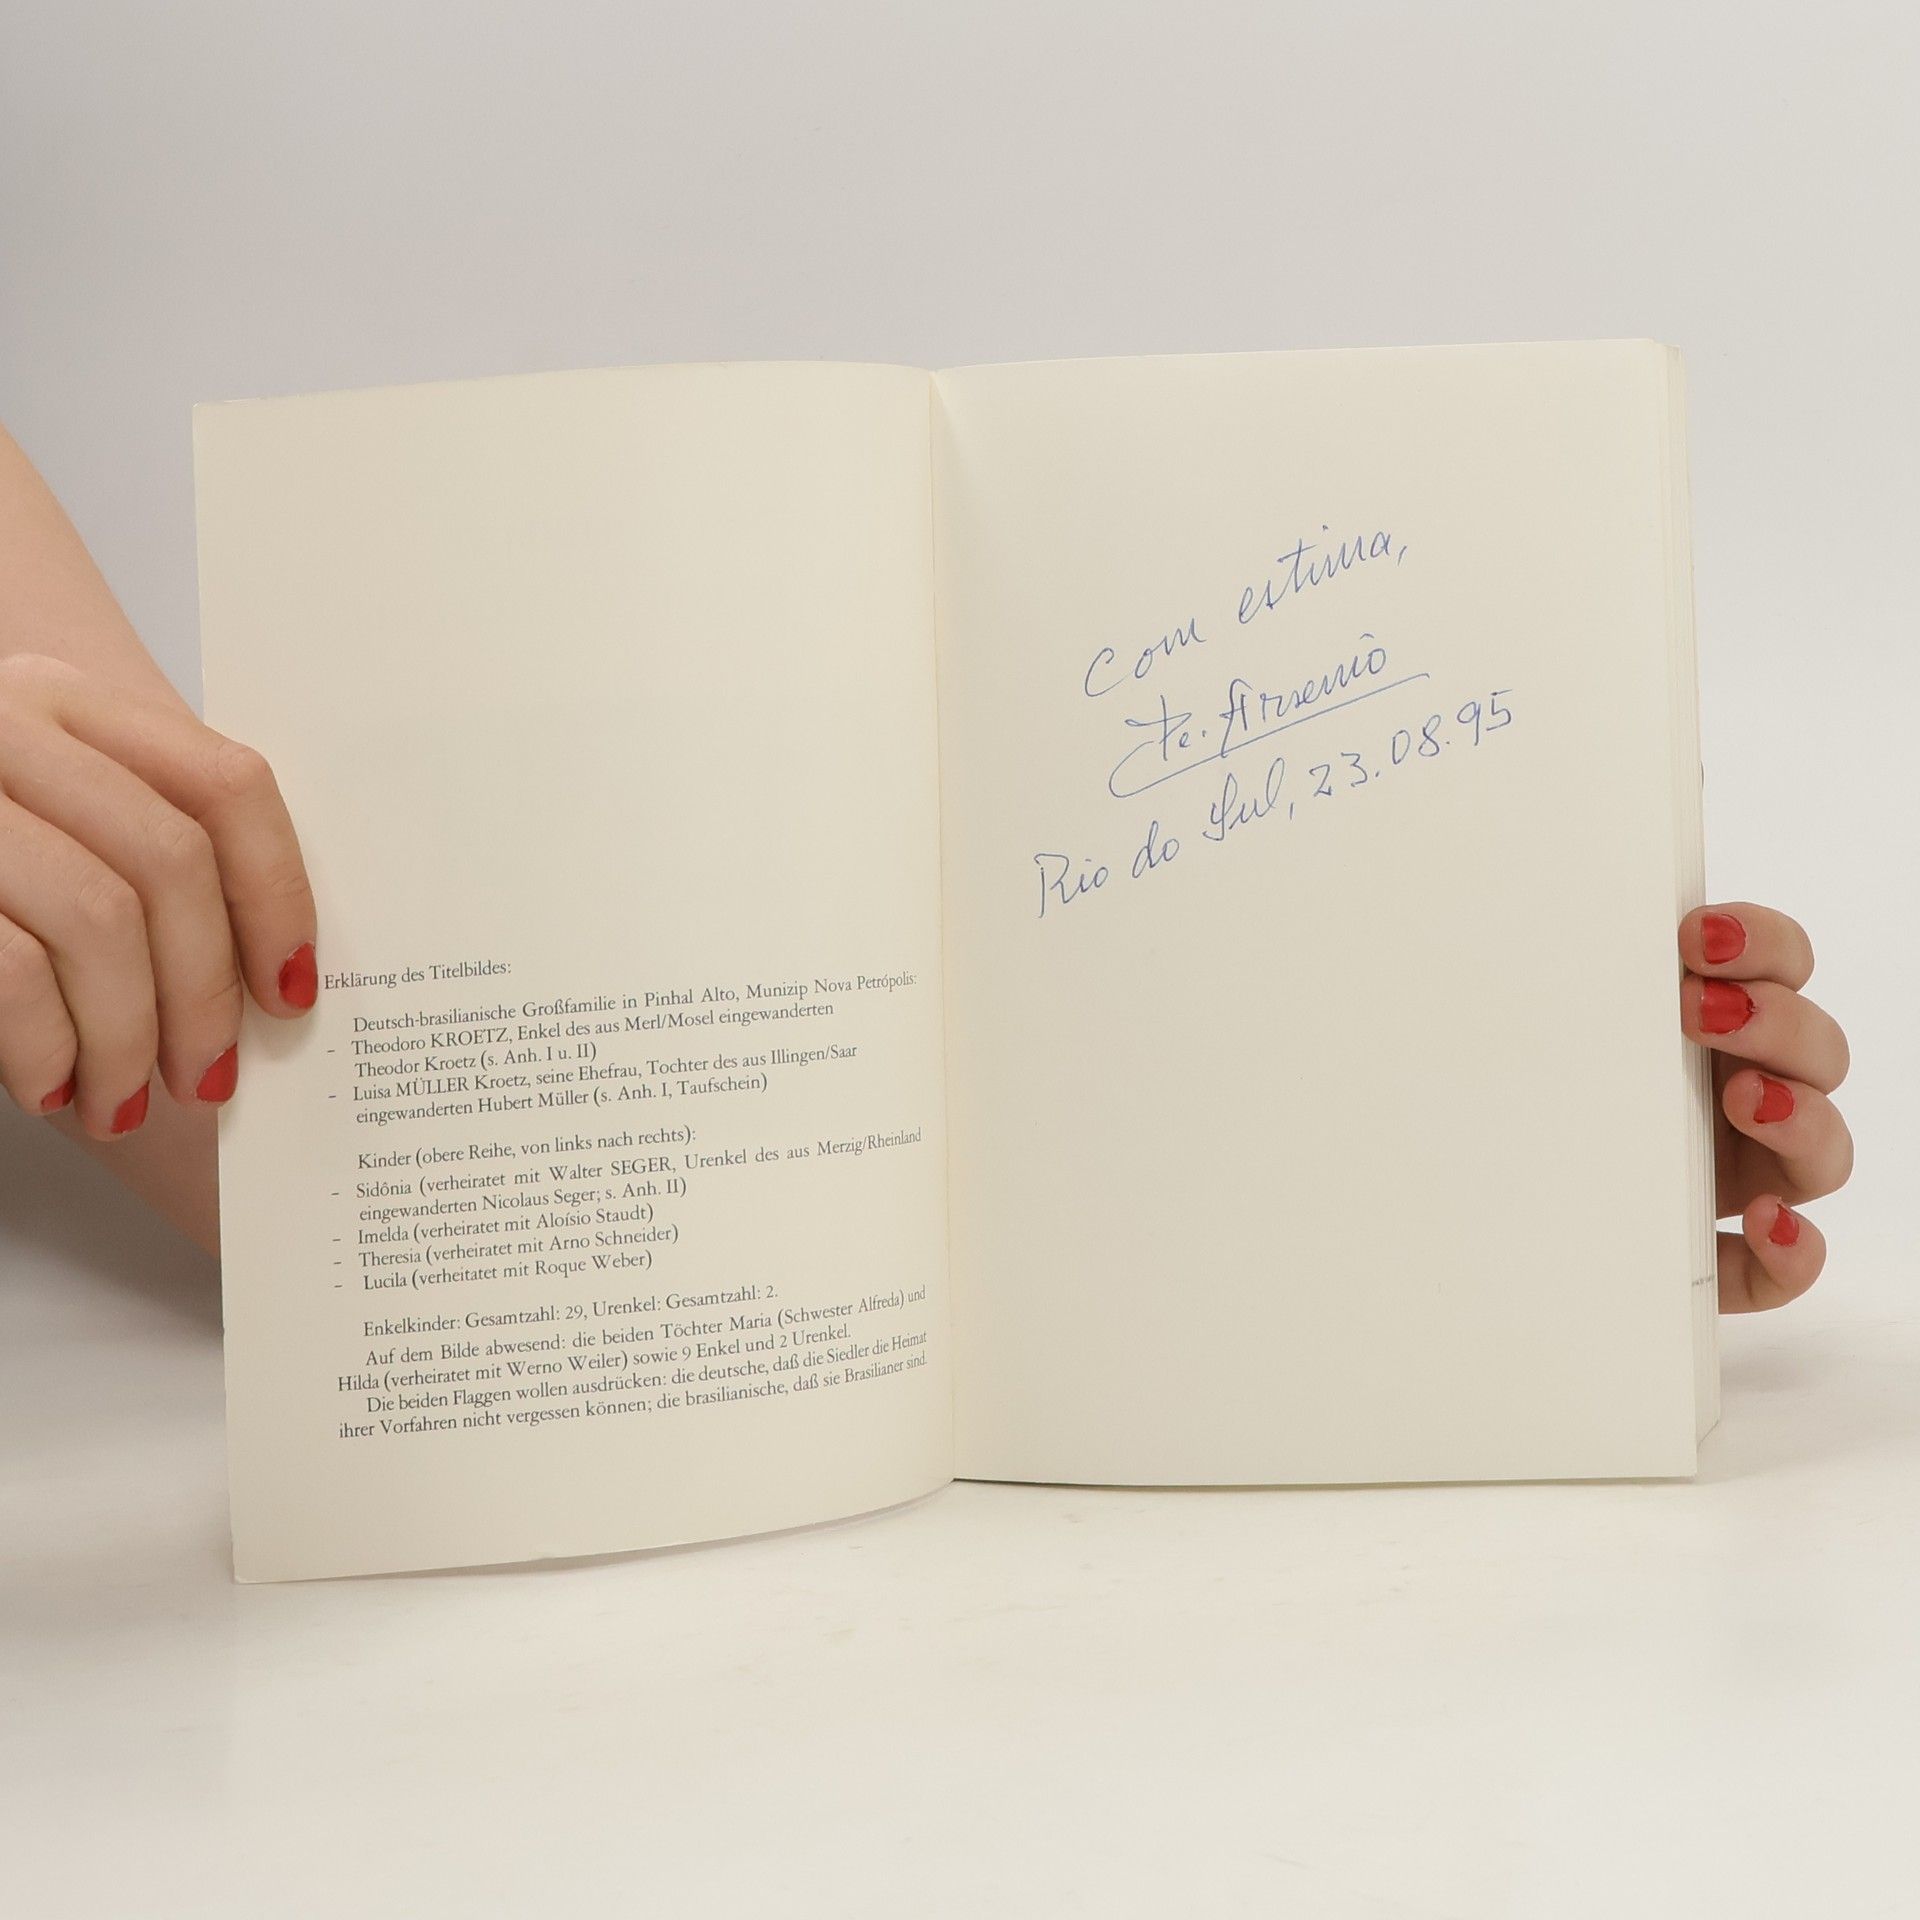 Erklärung des Titelbildes:
Deutsch-brasilianische Großfamilie in Pinhal Alto, Munizip Nova Petrópolis:
– Theodoro KROETZ, Enkel des aus Merl/Mosel eingewanderten
Theodor Kroetz (s. Anh. I u. II)
– Luisa MÜLLER Kroetz, seine Ehefrau, Tochter des aus Illingen/Saar
eingewanderten Hubert Müller (s. Anh. I, Taufschein)
Kinder (obere Reihe, von links nach rechts):
– Sidônia (verheiratet mit Walter SEGER, Urenkel des aus Merzig/Rheinland
eingewanderten Nicolaus Seger; s. Anh. II)
– Imelda (verheiratet mit Aloísio Staudt)
– Theresia (verheiratet mit Arno Schneider)
– Lucila (verheitatet mit Roque Weber)
Enkelkinder: Gesamtzahl: 29, Urenkel: Gesamtzahl: 2.
Auf dem Bilde abwesend: die beiden Töchter Maria (Schwester Alfreda) und
Hilda (verheiratet mit Werno Weiler) sowie 9 Enkel und 2 Urenkel.
Die beiden Flaggen wollen ausdrücken: die deutsche, daß die Siedler die Heimat
ihrer Vorfahren nicht vergessen können; die brasilianische, daß sie Brasilianer sind.
Com estima,
Pe. Arsenio
Rio do Sul, 23.08.95